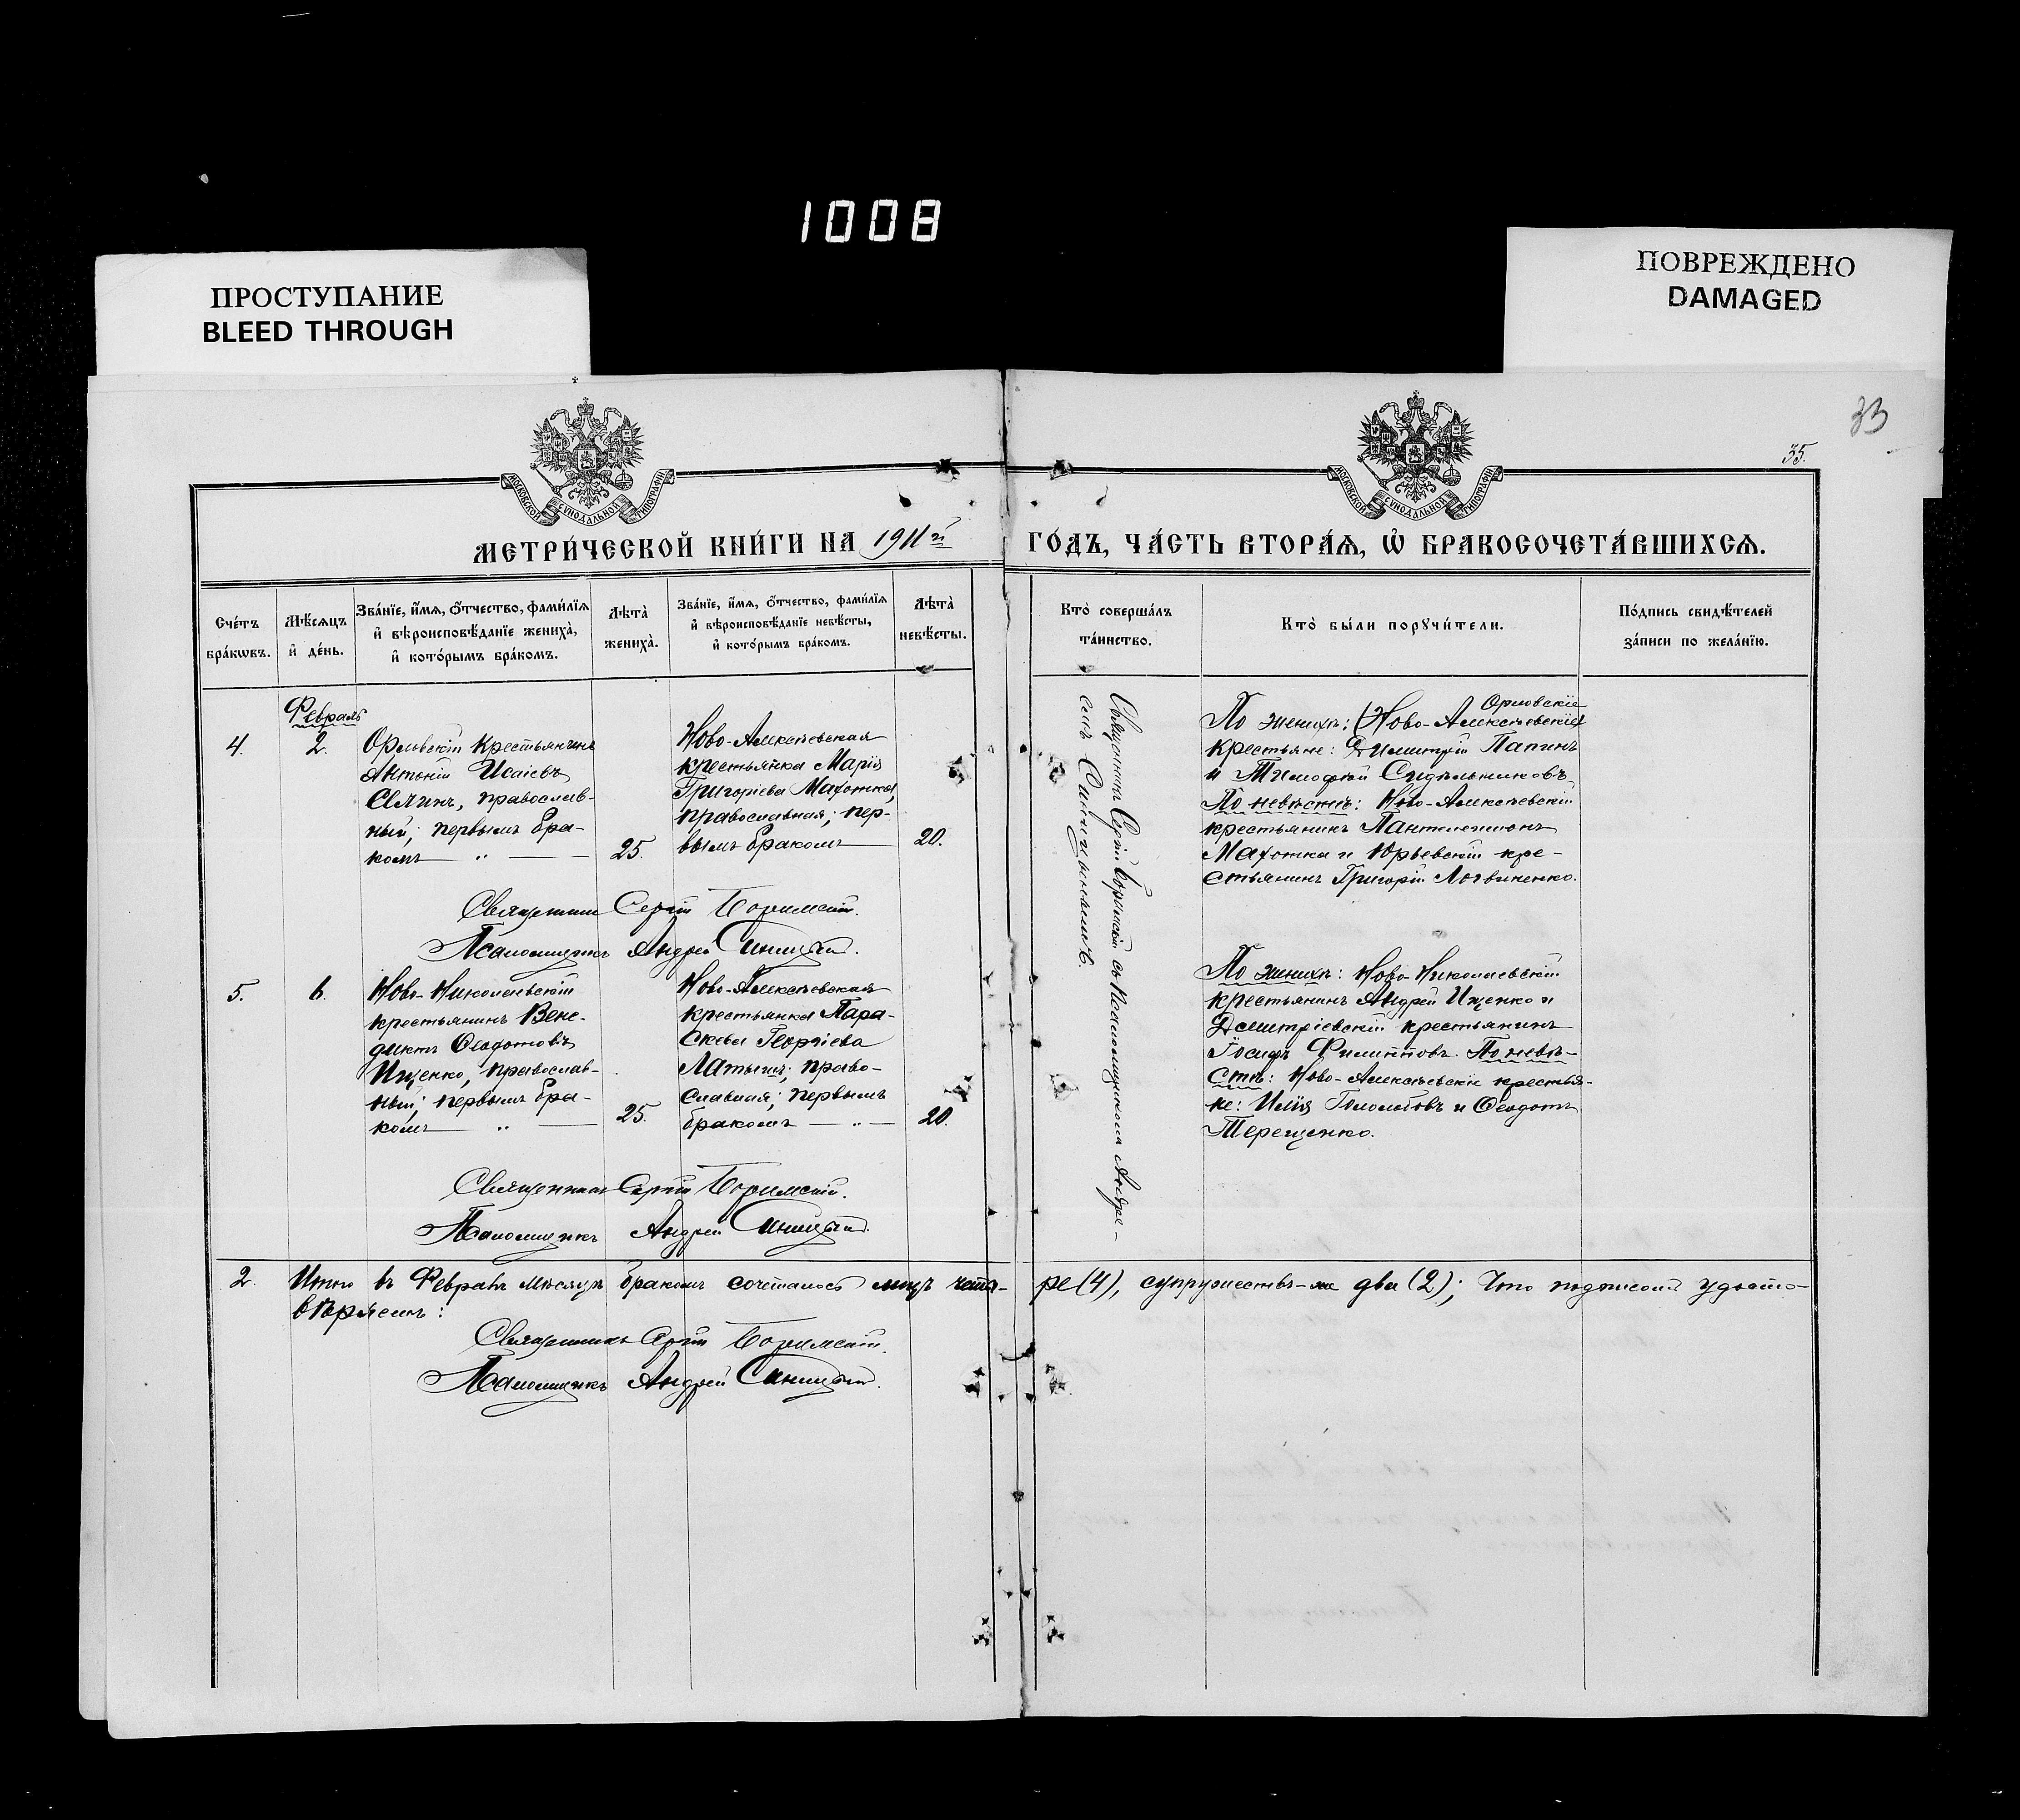 1008
ПРОСТУПАНИЕ
BLEED THROUGH
ПОВРЕЖДЕНО
DAMAGED
33
35.
МОСКОВСКОЙ СѴНОДАЛЬНОЙ ТИПОГРАФІИ
МОСКОВСКОЙ СѴНОДАЛЬНОЙ ТИПОГРАФІИ
МЕТРИ́ЧЕСКОЙ КНИ́ГИ НА 1911й ГО́ДЪ, ЧА́СТЬ ВТОРА́Ѧ, Ѡ҆ БРАКОСОЧЕТА́ВШИХСѦ.
Сче́тъ
бра́кѡвъ.
Мѣ́сѧцъ
и҆ де́нь.
Зва́нїе, и҆́мѧ, ѻ҆́тчество, фами́лїѧ
и҆ вѣроисповѣ́данїе жениха̀,
и҆ кото́рымъ бра́комъ.
Лѣта̀
жениха̀.
Зва́нїе, и҆́мѧ, ѻ҆́тчество, фами́лїѧ
и҆ вѣроисповѣ́данїе невѣ́сты,
и҆ кото́рымъ бра́комъ.
Лѣта̀
невѣ́сты.
Кто̀ соверша́лъ
та́инство.
Кто̀ бы́ли порꙋчи́тели.
По́дпись свидѣ́телей
за́писи по жела́нїю.
Февраль
4.
2.
Орловскій крестьянинъ
Антоній Исаіевъ
Селинъ, православ-
ный; первымъ бра-
комъ — „ —
25.
Ново-Алексѣевская
крестьянка Марія
Григоріева Махотка,
православная; пер-
вымъ бракомъ —
20.
Священникъ Сергій Боримскій съ псаломщикомъ Андре-
емъ Синицынымъ.
Орловскіе
По женихѣ: (Ново-Алексѣевскіе)
крестьяне: Димитрій Папинъ
и Тимофей Сидѣльниковъ.
По невѣстѣ: Ново-Алексѣевскій
крестьянинъ Пантелеимонъ
Махотка и Юрьевскій кре-
стьянинъ Григорій Логвиненко.
Священникъ Сергій Боримскій.
Псаломщикъ Андрей Синицынъ.
5.
6.
Ново-Николаевскій
крестьянинъ Вене-
диктъ Ѳеодотовъ
Ищенко, православ-
ный; первымъ бра-
комъ — „ —
25.
Ново-Алексѣевская
крестьянка Пара-
скева Георгіева
Латышъ; право-
славная; первымъ
бракомъ — „ —
20.
По женихѣ: Ново-Николаевскій
крестьянинъ Андрей Ищенко и
Димитріевскій крестьянинъ
Іосифъ Филипповъ. По невѣ-
стѣ: Ново-Алексѣевскіе крестья-
не: Илія Гололобовъ и Ѳеодотъ
Терещенко.
Священникъ Сергій Боримскій.
Псаломщикъ Андрей Синицынъ.
2. Итого въ Февралѣ мѣсяцѣ бракомъ сочеталось лицъ четы-ре (4), супружествъ-же два (2); что подписомъ удосто-
вѣряемъ:
Священникъ Сергій Боримскій.
Псаломщикъ Андрей Синицынъ.